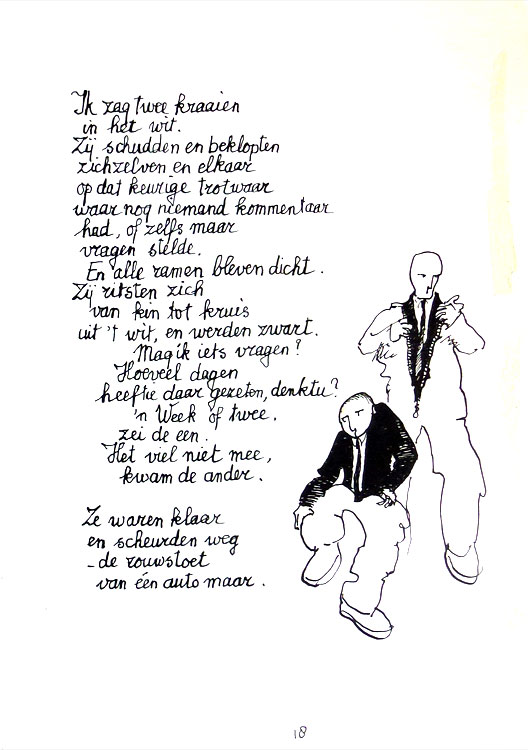 Ik zag twee kraaien
in het wit.
Zij schudden en beklopten
zichzelven en elkaar
op dat keurige trotwaar
waar nog niemand kommentaar
had, of zelfs maar
vragen stelde.
En alle ramen bleven dicht.
Zij ritsten zich
van kin tot kruis
uit 't wit, en werden zwart.
Mag ik iets vragen?
Hoeveel dagen
heeftie daar gezeten, denktu?
'n Week of twee.
zei de een.
Het viel niet mee,
kwam de ander.
Ze waren klaar
en scheurden weg
- de rouwstoet
van één auto maar.
18